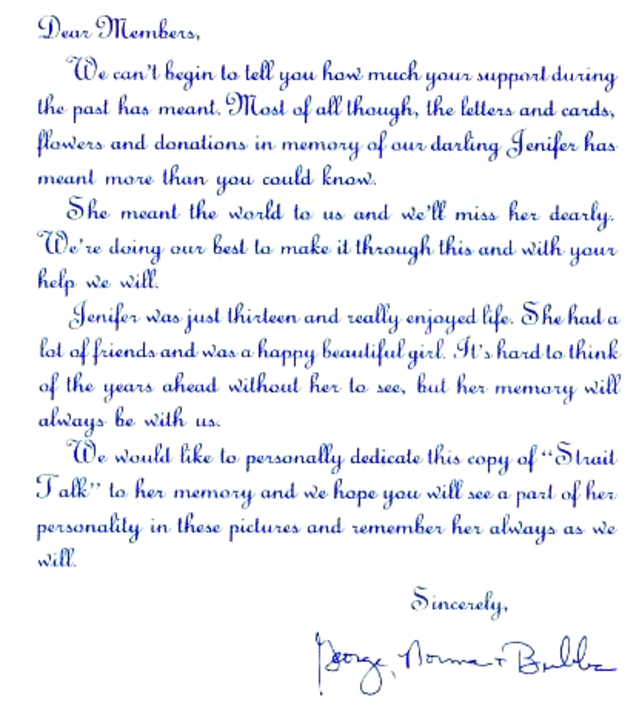 Dear Members,
We can't begin to tell you how much your support during
the past has meant. Most of all though, the letters and cards,
flowers and donations in memory of our darling Jenifer has
meant more than you could know.
She meant the world to us and we'll miss her dearly.
We're doing our best to make it through this and with your
help we will.
Jenifer was just thirteen and really enjoyed life. She had a
lot of friends and was a happy beautiful girl. It's hard to think
of the years ahead without her to see, but her memory will
always be with us.
We would like to personally dedicate this copy of "Strait
Talk" to her memory and we hope you will see a part of her
personality in these pictures and remember her always as we
will.
Sincerely,
George, Norma + Bubba